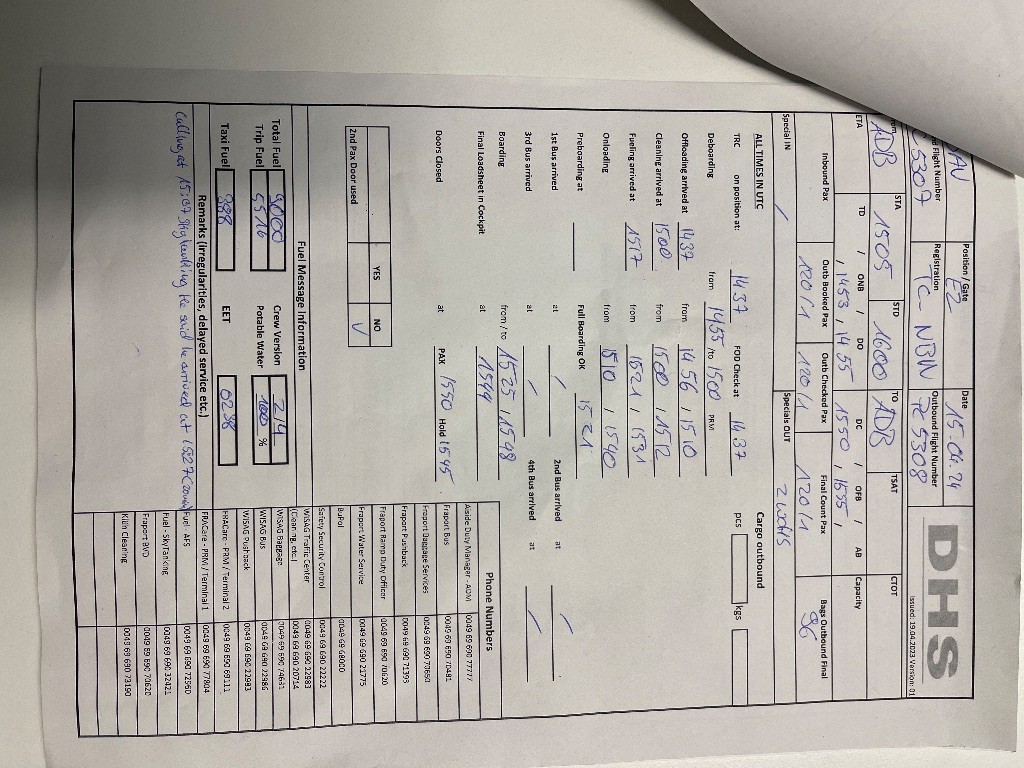 DHS
Issued: 19.04.2023 Version: 01
Position / Gate E2
Date 15.04.24
Flight Number 5307
Registration TC-NBN
Outbound Flight Number PC 5308
ADB
STA 1505
STD 1600
TO ADB
TSAT
CTOT
ETA
TD / ONB / DO , 1453 , 1455
DC / OFB / AB 1550 , 1555 ,
Capacity
Inbound Pax
Outb Booked Pax 120/1
Outb Checked Pax 120/1
Final Count Pax 120/1
Bags Outbound Final 96
Special IN /
Specials OUT 2 WCHS
ALL TIMES IN UTC
Cargo outbound
TRC on position at: 1437 FOD Check at 1437
pcs kgs
Deboarding from 1455 /to 1500 PRM
Offloading arrived at 1437 from 1456 , 1510
Cleaning arrived at 1500 from 1500 , 1512
Fueling arrived at 1517 from 1521 , 1531
Onloading from 1510 , 1540
Preboarding at Full Boarding OK 1521
1st Bus arrived at / 2nd Bus arrived at /
3rd Bus arrived at / 4th Bus arrived at /
Boarding from / to 1525 , 1548
Final Loadsheet in Cockpit at 1544
Doors Closed at PAX 1550 Hold 1545
YES NO
2nd Pax Door used V
Fuel Message Information
Total Fuel 9000 Crew Version 2/4
Trip Fuel 5516 Potable Water 100 %
Taxi Fuel 388 EET 0238
Remarks (irregularities, delayed service etc.)
Calling at 15:07 Skytanking He said he arrived at 1527
Phone Numbers
Airside Duty Manager - ADM 0049 69 690 77777
Fraport Bus 0049 69 690 70491
Fraport Baggage Services
Fraport Pushback
Fraport Ramp Duty Officer
Fraport Water Service 0049 69 690 21775
BuPol 0049 69 68000
Safety Security Control 0049 69 690 22222
WISAG Traffic Center 0049 69 690 22983
(Cleaning, etc.) 0049 69 690 20714
WISAG Baggage
WISAG Bus 0049 69 690 22986
WISAG Pushback 0049 69 690 22983
FRACare - PRM / Terminal 2 0049 69 690 69111
FRACare - PRM / Terminal 1 0049 69 690 77804
Fuel - AFS 0049 69 690 72960
Fuel - SkyTanking 0049 69 690 32421
Fraport BVD 0049 69 690 70620
Klüh Cleaning 0049 69 690 73190